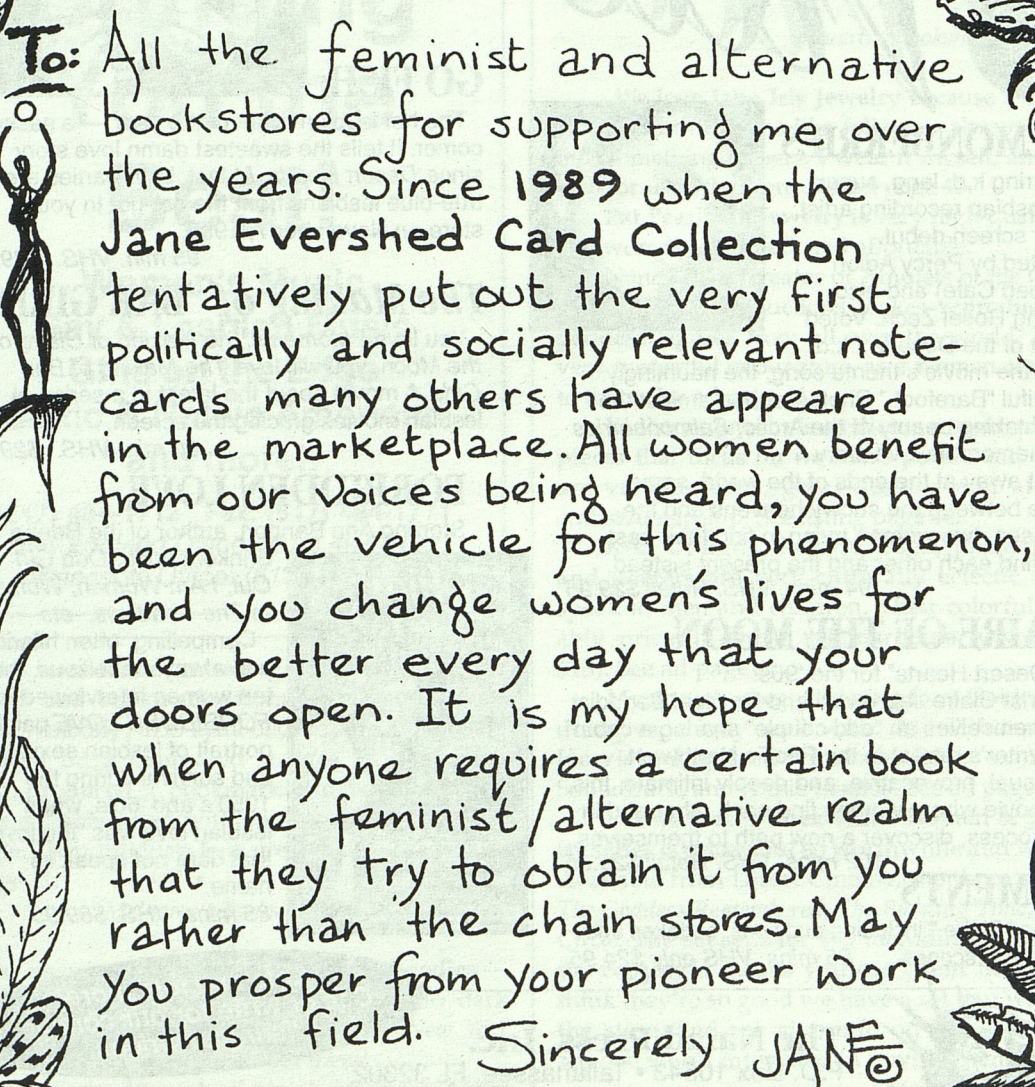 To: All the feminist and alternative
bookstores for supporting me over
the years. Since 1989 when the
Jane Evershed Card Collection
tentatively put out the very first
politically and socially relevant note-
cards many others have appeared
in the marketplace. All women benefit
from our voices being heard, you have
been the vehicle for this phenomenon,
and you change women's lives for
the better every day that your
doors open. It is my hope that
when anyone requires a certain book
from the feminist/alternative realm
that they try to obtain it from you
rather than the chain stores. May
you prosper from your pioneer work
in this field. Sincerely JANE